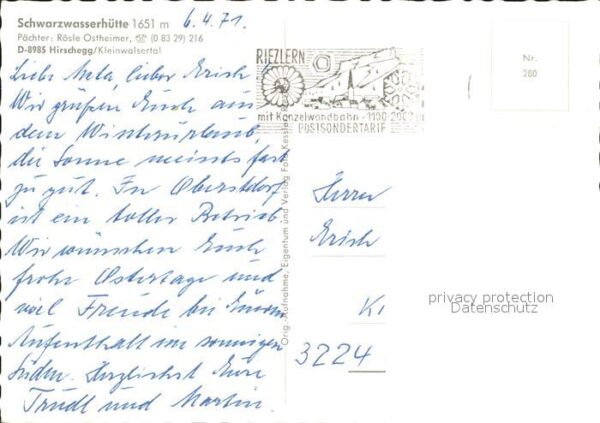 Schwarzwasserhütte 1651 m 6.4.71.
Pächter: Rösle Ostheimer, ☏ (0 83 29) 216
D-8985 Hirschegg/Kleinwalsertal
Liebe Meta, lieber Erich
Wir grüßen Euch aus
dem Winterurlaub,
die Sonne meint's fast
zu gut. In Oberstdorf
ist ein toller Betrieb
Wir wünschen Euch
frohe Ostertage und
viel Freude bei Eurem
Aufenthalt im sonnigen
Süden. Herzlichst Eure
Trudl und Martin.
Orig.-Aufnahme, Eigentum und Verlag Foto Kessler
RIEZLERN
mit Kanzelwandbahn - 1100-2000 m
POSTSONDERTARIF
Nr.
280
Herrn
Erich
Ki
3224
privacy protection
Datenschutz